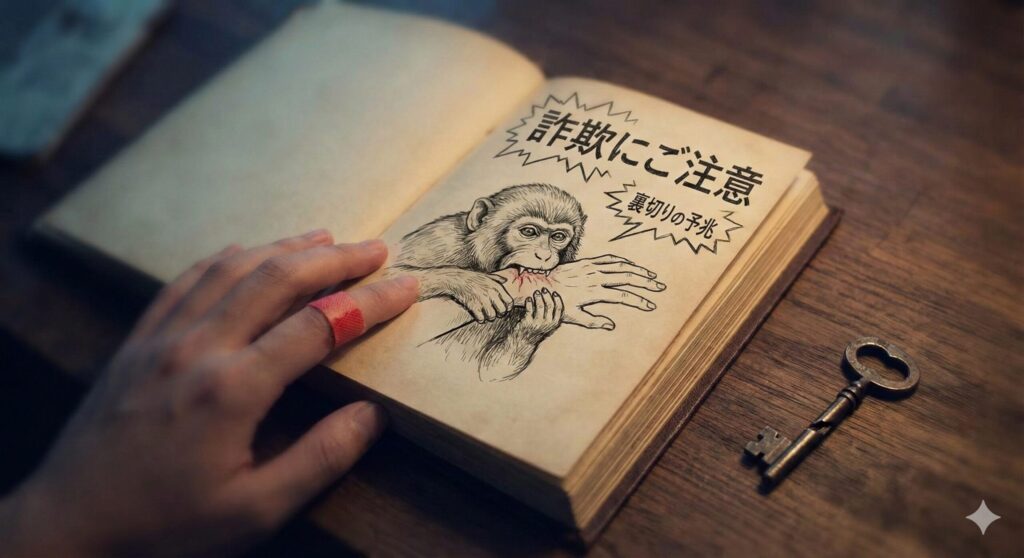 詐欺にご注意
裏切りの予兆